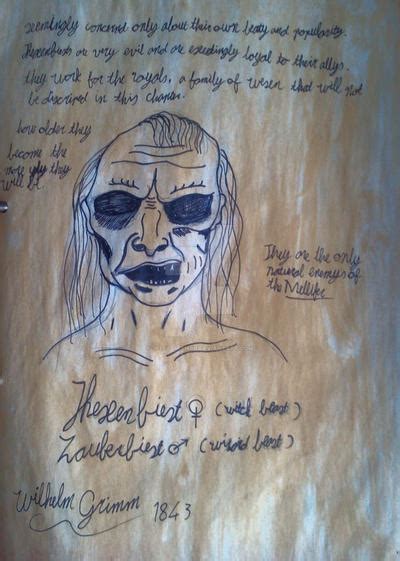 seemingly concerned only about their own beaty and popularity.
Hexenbiests are very evil and are exceedingly loyal to their allys.
they work for the royals, a family of wesen that will not
be discribed in this chapter.
how older they
become the
more ugly they
will be.
They are the only
natural enemys of
the Mellifer
Hexenbiest ♀ (witch beast)
Zauberbiest ♂ (wizard beast)
Wilhelm Grimm 1843